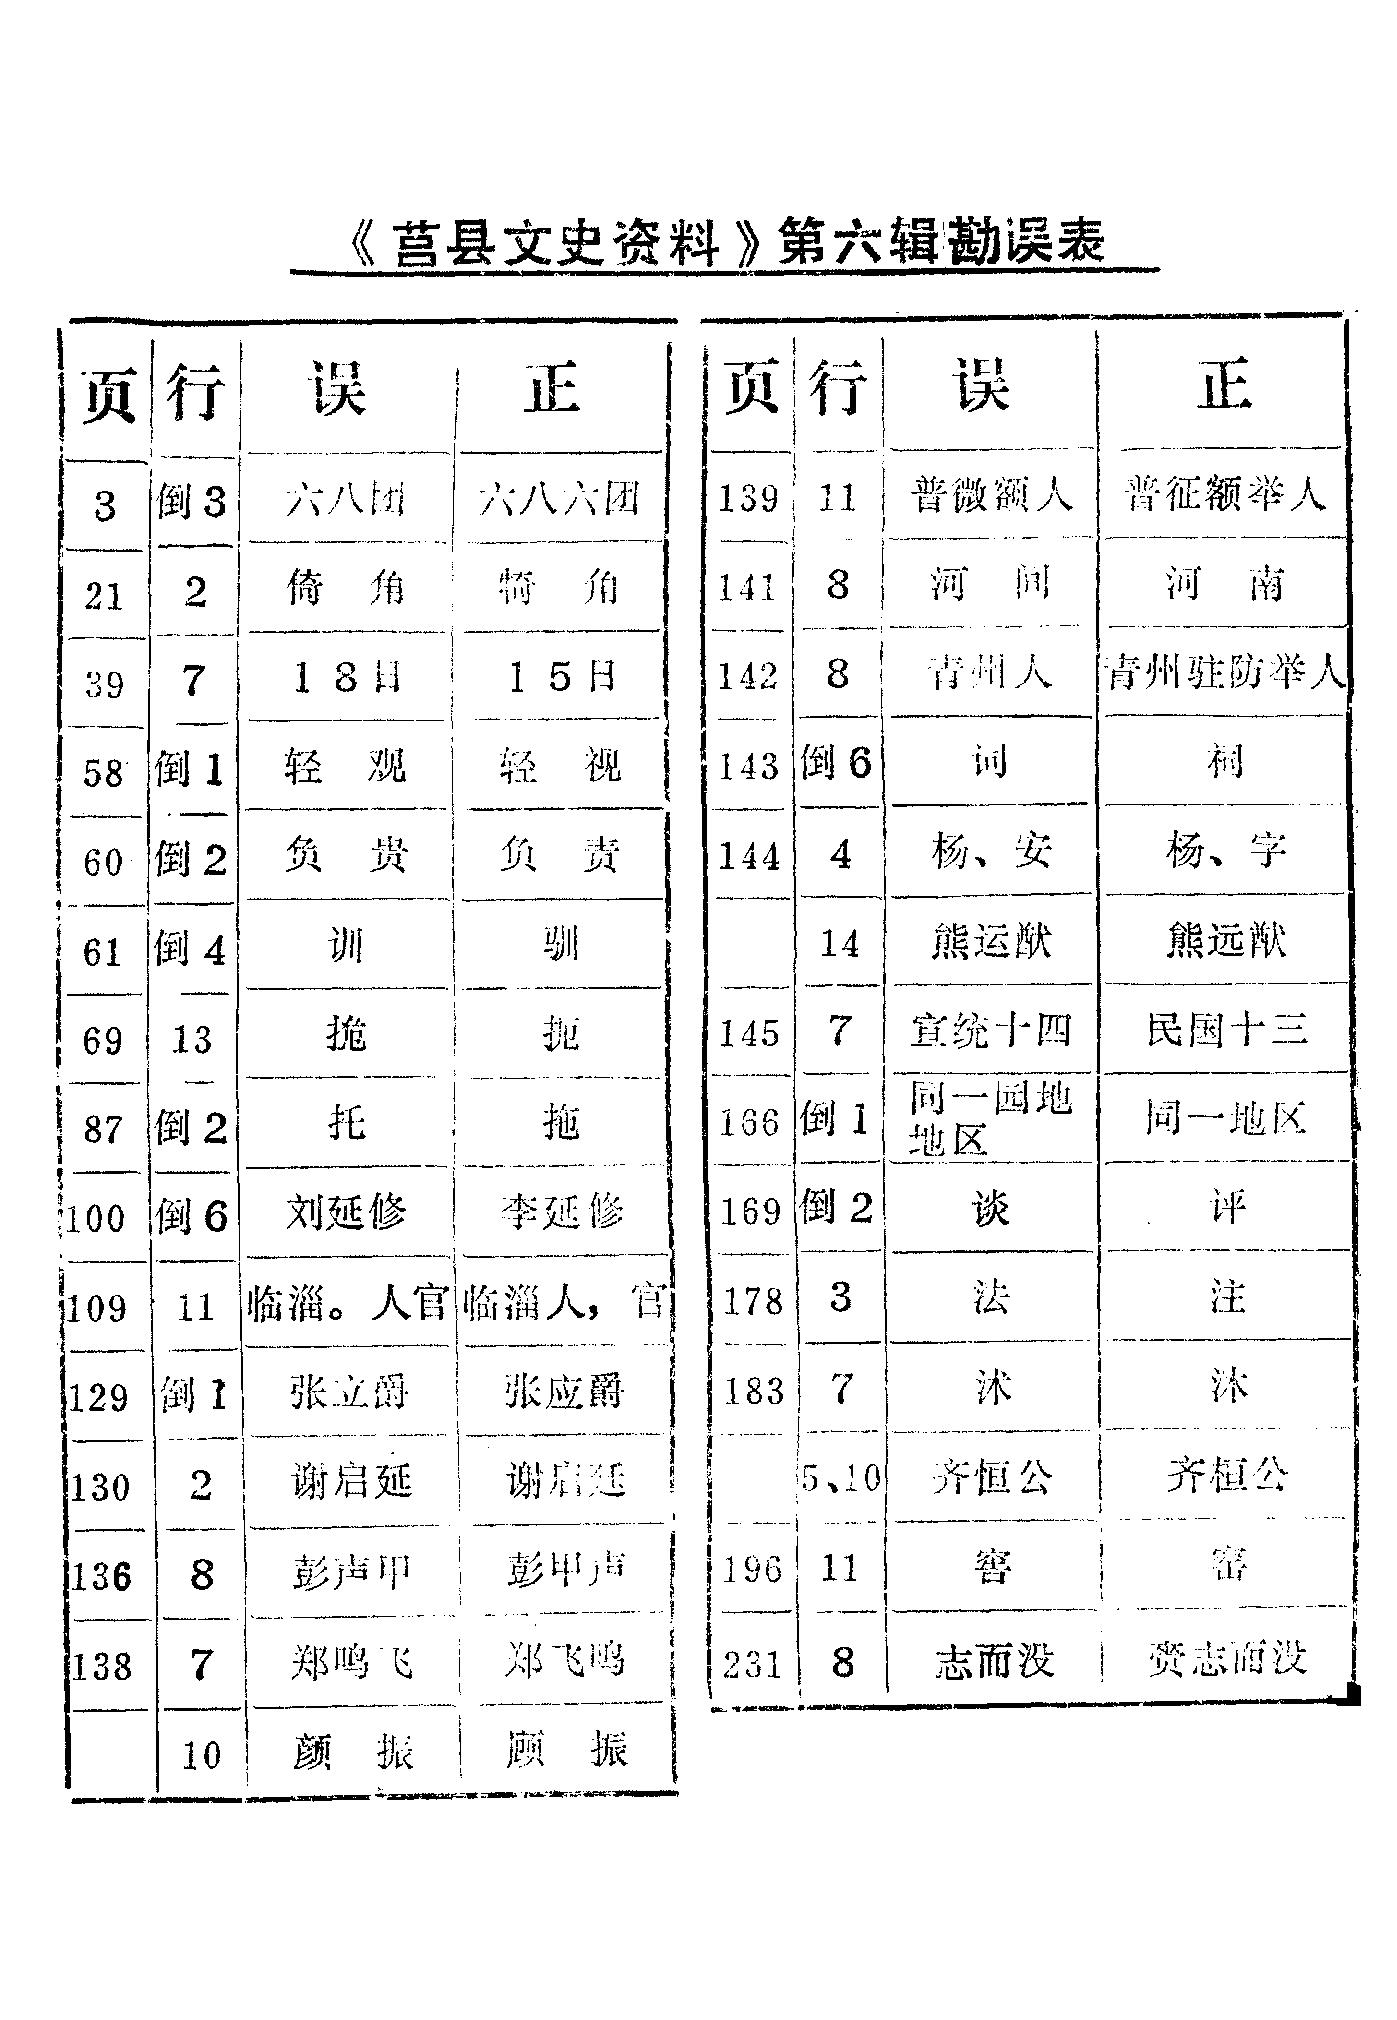 《莒县文史资料》第六辑勘误表
页 行 误 正
3 倒3 六八团 六八六团
21 2 倚角 犄角
39 7 18日 15日
58 倒1 轻观 轻视
60 倒2 负贵 负责
61 倒4 训 驯
69 13 扼
87 倒2 托 拖
100 倒6 刘延修 李延修
109 11 临淄。人官 临淄人，官
129 倒1 张立爵 张应爵
130 2 谢启延 谢启廷
136 8 彭声甲 彭甲声
138 7 郑鸣飞 郑飞鸣
10 颜振 顾振
页 行 误 正
139 11 普微额人 普征额举人
141 8 河间 河南
142 8 青州人 青州驻防举人
143 倒6 词 祠
144 4 杨、安 杨、字
14 熊运猷 熊远猷
145 7 宣统十四 民国十三
166 倒1 同一园地
地区 同一地区
169 倒2 谈 评
178 3 法 注
183 7 沭 沐
5、10 齐恒公 齐桓公
196 11 窖 窑
231 8 志而没 赍志而没